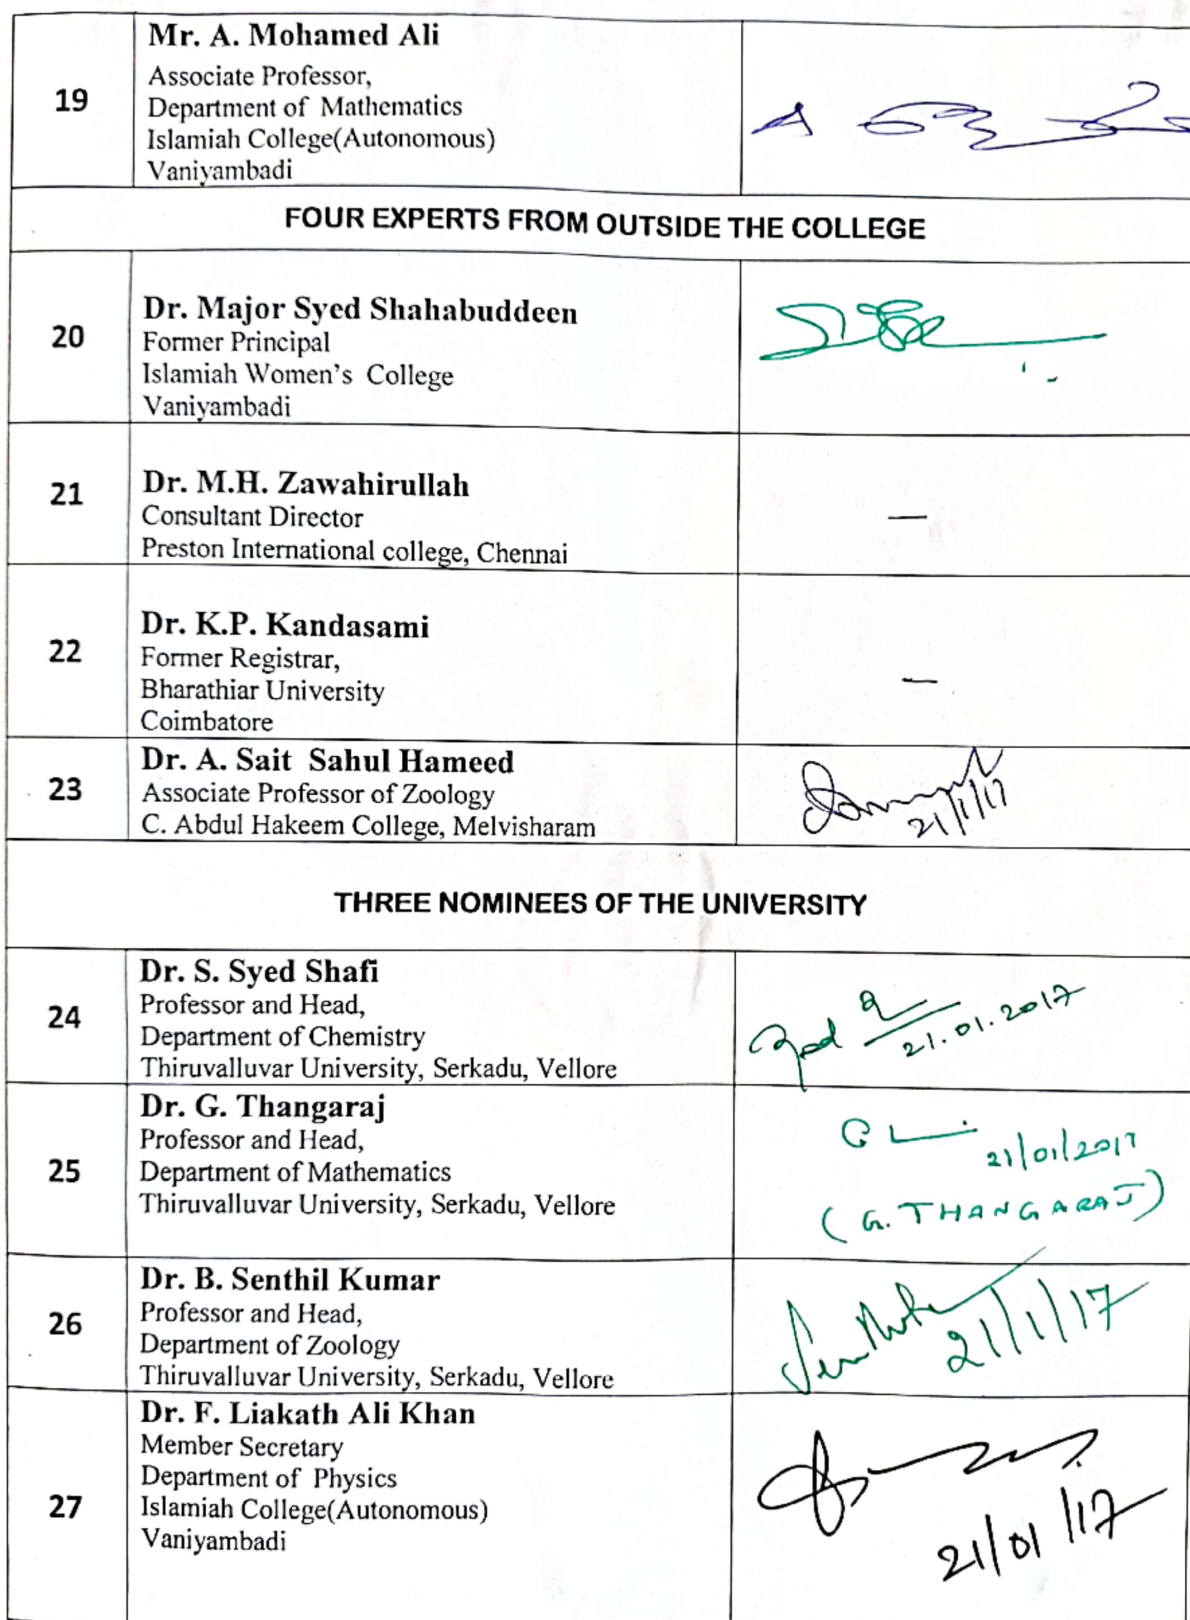 19
Mr. A. Mohamed Ali
Associate Professor,
Department of Mathematics
Islamiah College(Autonomous)
Vaniyambadi
FOUR EXPERTS FROM OUTSIDE THE COLLEGE
20
Dr. Major Syed Shahabuddeen
Former Principal
Islamiah Women's College
Vaniyambadi
21
Dr. M.H. Zawahirullah
Consultant Director
Preston International college, Chennai
—
22
Dr. K.P. Kandasami
Former Registrar,
Bharathiar University
Coimbatore
—
23
Dr. A. Sait Sahul Hameed
Associate Professor of Zoology
C. Abdul Hakeem College, Melvisharam
21/1/17
THREE NOMINEES OF THE UNIVERSITY
24
Dr. S. Syed Shafi
Professor and Head,
Department of Chemistry
Thiruvalluvar University, Serkadu, Vellore
21.01.2017
25
Dr. G. Thangaraj
Professor and Head,
Department of Mathematics
Thiruvalluvar University, Serkadu, Vellore
21/01/2017
(G. THANGARAJ)
26
Dr. B. Senthil Kumar
Professor and Head,
Department of Zoology
Thiruvalluvar University, Serkadu, Vellore
21/1/17
27
Dr. F. Liakath Ali Khan
Member Secretary
Department of Physics
Islamiah College(Autonomous)
Vaniyambadi
21/01/17